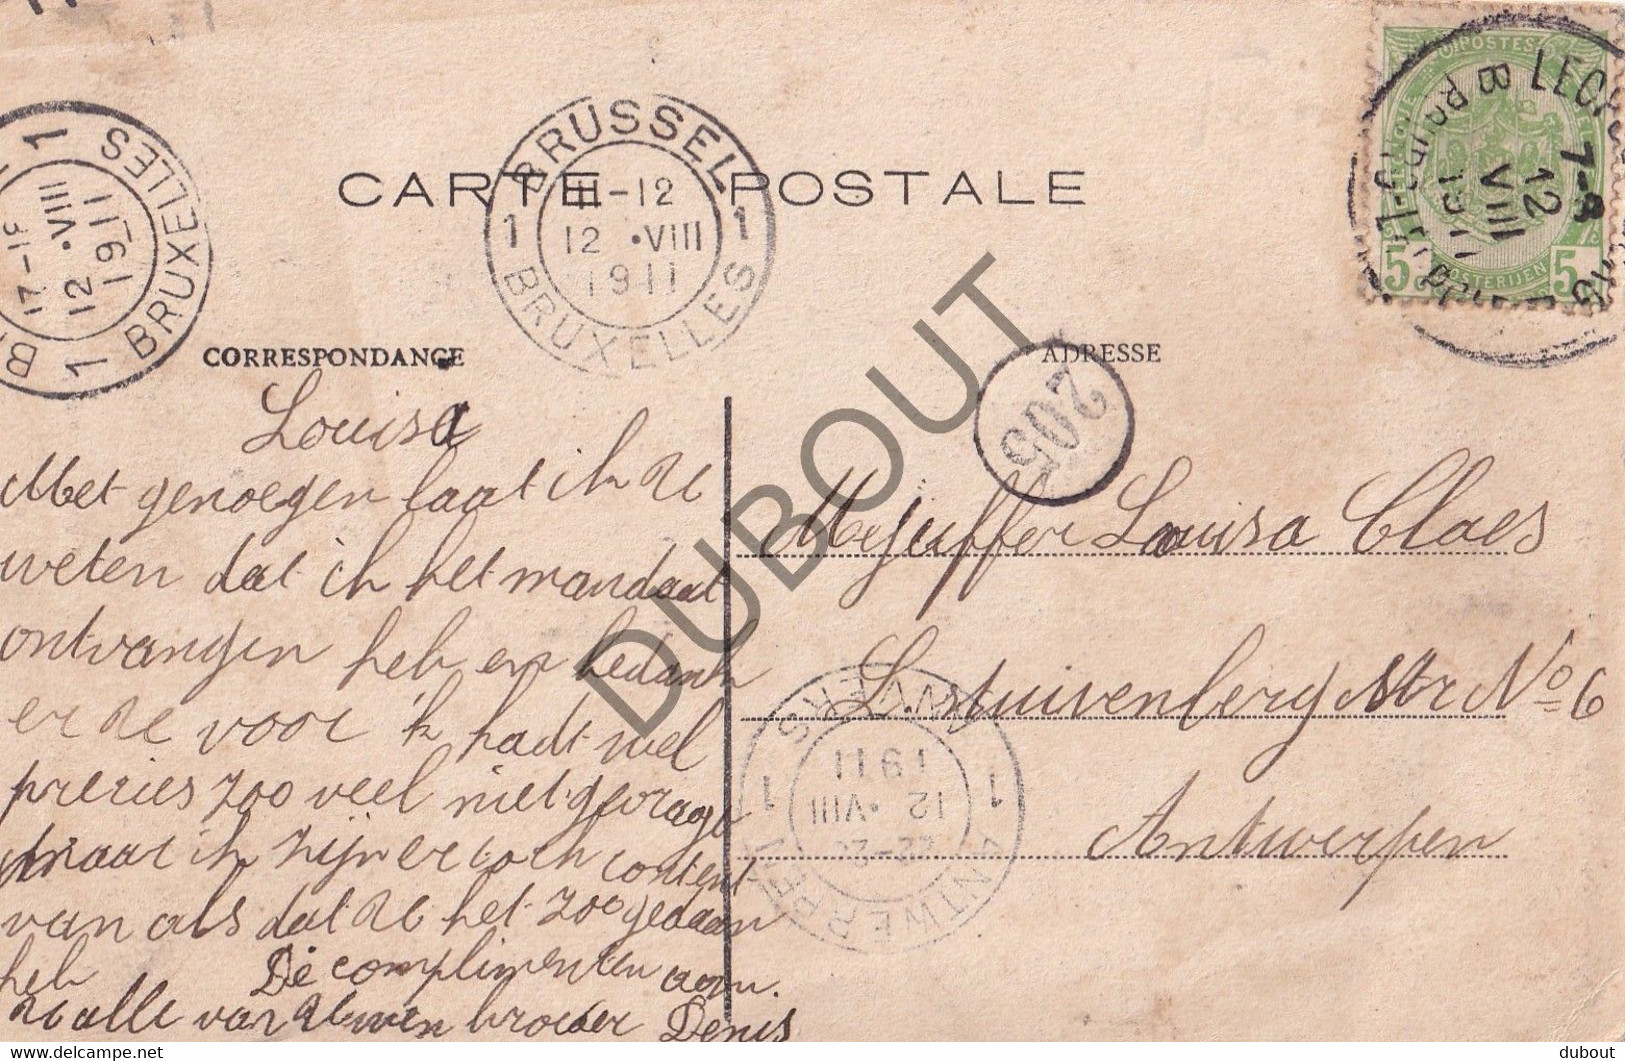 CARTE POSTALE
BRUSSEL
11-12
12 • VIII
1911
1 1
BRUXELLES
17-18
12 • VIII
1911
1 BRUXELLES 1
7-8
12
VIII
1911
POSTES
POSTERIJEN
5 5
CORRESPONDANCE
ADRESSE
205
Louisa
Met genoegen laat ik U
weten dat ik het mandaat
ontvangen heb en bedank
er U voor 'k hadt wel
precies zoo veel niet gevraagt
maar ik zijn er toch content
van als dat U het zoo gedaan
heb De complimenten aan
U alle van Uwen broeder Denis
Mejuffer Louisa Claes
L. stuivenberg Str No 6
Antwerpen
ANTWERPEN
12 • VIII
1911
1 1
ANVERS
DUBOUT
delcampe.net
dubout